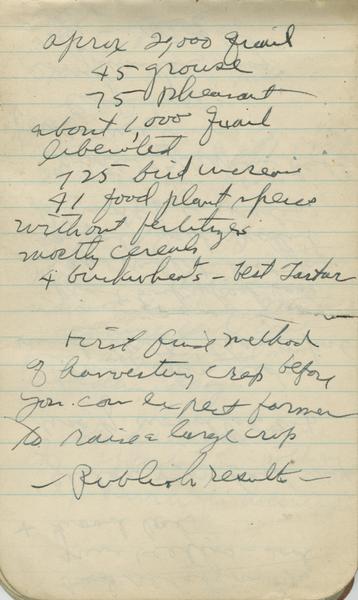 aprox 2,000 quail
45 grouse
75 Pheasant
about 1,000 quail
liberated
725 bird
41 food plant species
without fertilizers
mostly cereals
4 buckwheats - best Tartar
First find method
of harvesting crop before
you can expect farmer
to raise a large crop
- Publish results -